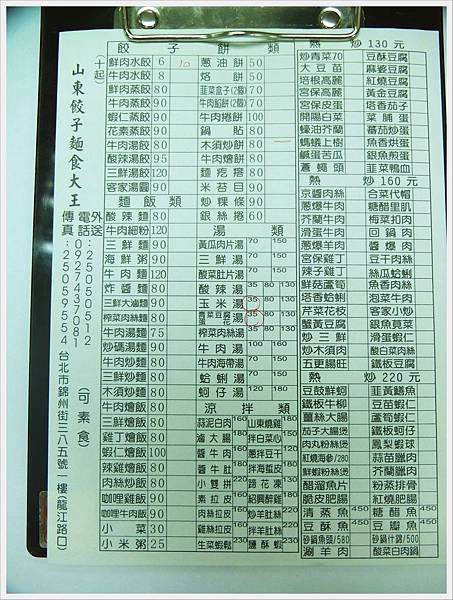 山東餃子麵食大王
(十起)
外送
電話:25050512
0927437081
傳真:25059554
(可素食)
台北市錦州街三八五號一樓(龍江路口)
餃子餅類
鮮肉水餃 6 10 蔥油餅 50
牛肉水餃 8 烙餅 50
鮮肉蒸餃 80 韭菜盒子(2個) 70
牛肉蒸餃 90 牛肉餡餅(2個) 70
蝦仁蒸餃 90 牛肉捲餅 100
花素蒸餃 90 鍋貼 80
牛肉湯餃 80 木須炒餅 80
酸辣湯餃 95 牛肉燴餅 90
三鮮湯餃 120 麵疙瘩 80
客家湯圓 90 米苔目 90
麵飯類 粿條 90
酸辣麵 80 銀絲捲 60
牛肉細粉 120 湯
三鮮麵 90 黃瓜肉片湯 70 150
海鮮粥 90 三鮮湯 70 150
牛肉麵 120 酸菜肚片湯 70 150
炸醬麵 80 酸辣湯 35 80 130
三鮮大滷麵 90 玉米湯 35 80 130
榨菜肉絲麵 80 青菜豆腐蛋花湯 35 80 130
牛肉湯麵 75 榨菜肉絲湯 70 150
炒碼湯麵 90 牛肉湯 100 160
牛肉炒麵 80 牛肉海帶湯 70 150
三鮮炒麵 80 蛤蜊湯 70 150
肉絲炒麵 80 蚵仔湯 120 180
牛肉燴飯 80 涼拌類
三鮮燴飯 80 蒜泥白肉 160 山東燒雞 180
雞丁燴飯 80 滷大腸 160 拌白菜心 120
蝦仁燴飯 100 醬牛肉 150 蔥拌豆干
辣雞燴飯 80 醬牛肚 拌海蜇皮
肉絲炒飯 80 小雙拼 220 蹄花凍
咖哩雞飯 90 素拉皮 紹興醉雞
咖哩牛肉飯 90 肉絲拉皮 炒羊肚絲
小菜 30 雞絲拉皮 拌羊肚絲
小米粥 25 生菜蝦鬆 230 鹽酥蝦 230
熱炒130元
炒青菜70 豆酥豆腐
大豆苗 麻婆豆腐
塔根高麗 紅燒豆腐
宮保高麗 黃金豆腐
宮保皮蛋 塔香茄子
開陽白菜 菜脯蛋
蠔油芥蘭 蕃茄炒蛋
螞蟻上樹 魚香烘蛋
鹹蛋苦瓜 銀魚煎蛋
蒼蠅頭 韭菜鴨血
熱炒160元
京醬肉絲 合菜代帽
蔥爆牛肉 糖醋里肌
芥蘭牛肉 梅菜扣肉
滑蛋牛肉 回鍋肉
蔥爆羊肉 醬爆肉
宮保雞丁 豆干肉絲
辣子雞丁 絲瓜蛤蜊
鮮菇蘆筍 魚香肉絲
塔香蛤蜊 泡菜牛肉
芹菜花枝 客家小炒
蟹黃豆腐 銀魚莧菜
炒三鮮 滑蛋蝦仁
炒木須肉 酸白菜肉絲
五更腸旺 鐵板豆腐
熱炒220元
豆鼓鮮蚵 韭黃鱔魚
鐵板牛柳 豆苗蝦仁
薑絲大腸 鐵板蝦仁
茄子大腸煲 鳳梨蝦球
肉丸粉絲煲 蒜苗臘肉
紅燒海參/280 芥蘭臘肉
鮮蝦粉絲煲 粉蒸排骨
醋溜魚片 紅燒肥腸
脆皮肥腸
清蒸魚 450 糖醋魚 450
豆酥魚 450 豆瓣魚 450
砂鍋魚頭/580 砂鍋什錦/500
涮羊肉 酸菜白肉鍋